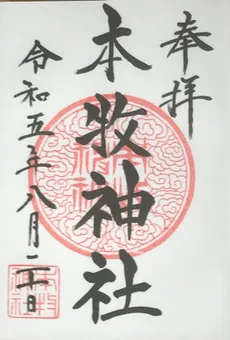 奉拝
本牧神社
令和五年八月二十日